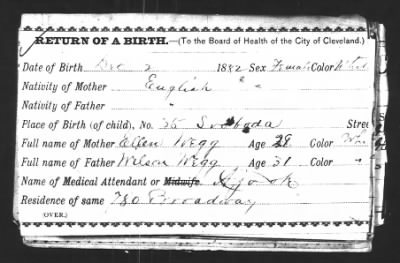 RETURN OF A BIRTH.—(To the Board of Health of the City of Cleveland.)
Date of Birth Dec 2 1882 Sex Female Color White
Nativity of Mother English " "
Nativity of Father "
Place of Birth (of child), No. 35 Svoboda Stree
Full name of Mother Ellen Wegg Age 29 Color Whi
Full name of Father Wilson Wegg Age 31 Color "
Name of Medical Attendant or Midwife.
Residence of same 780 Broadway
(OVER.)